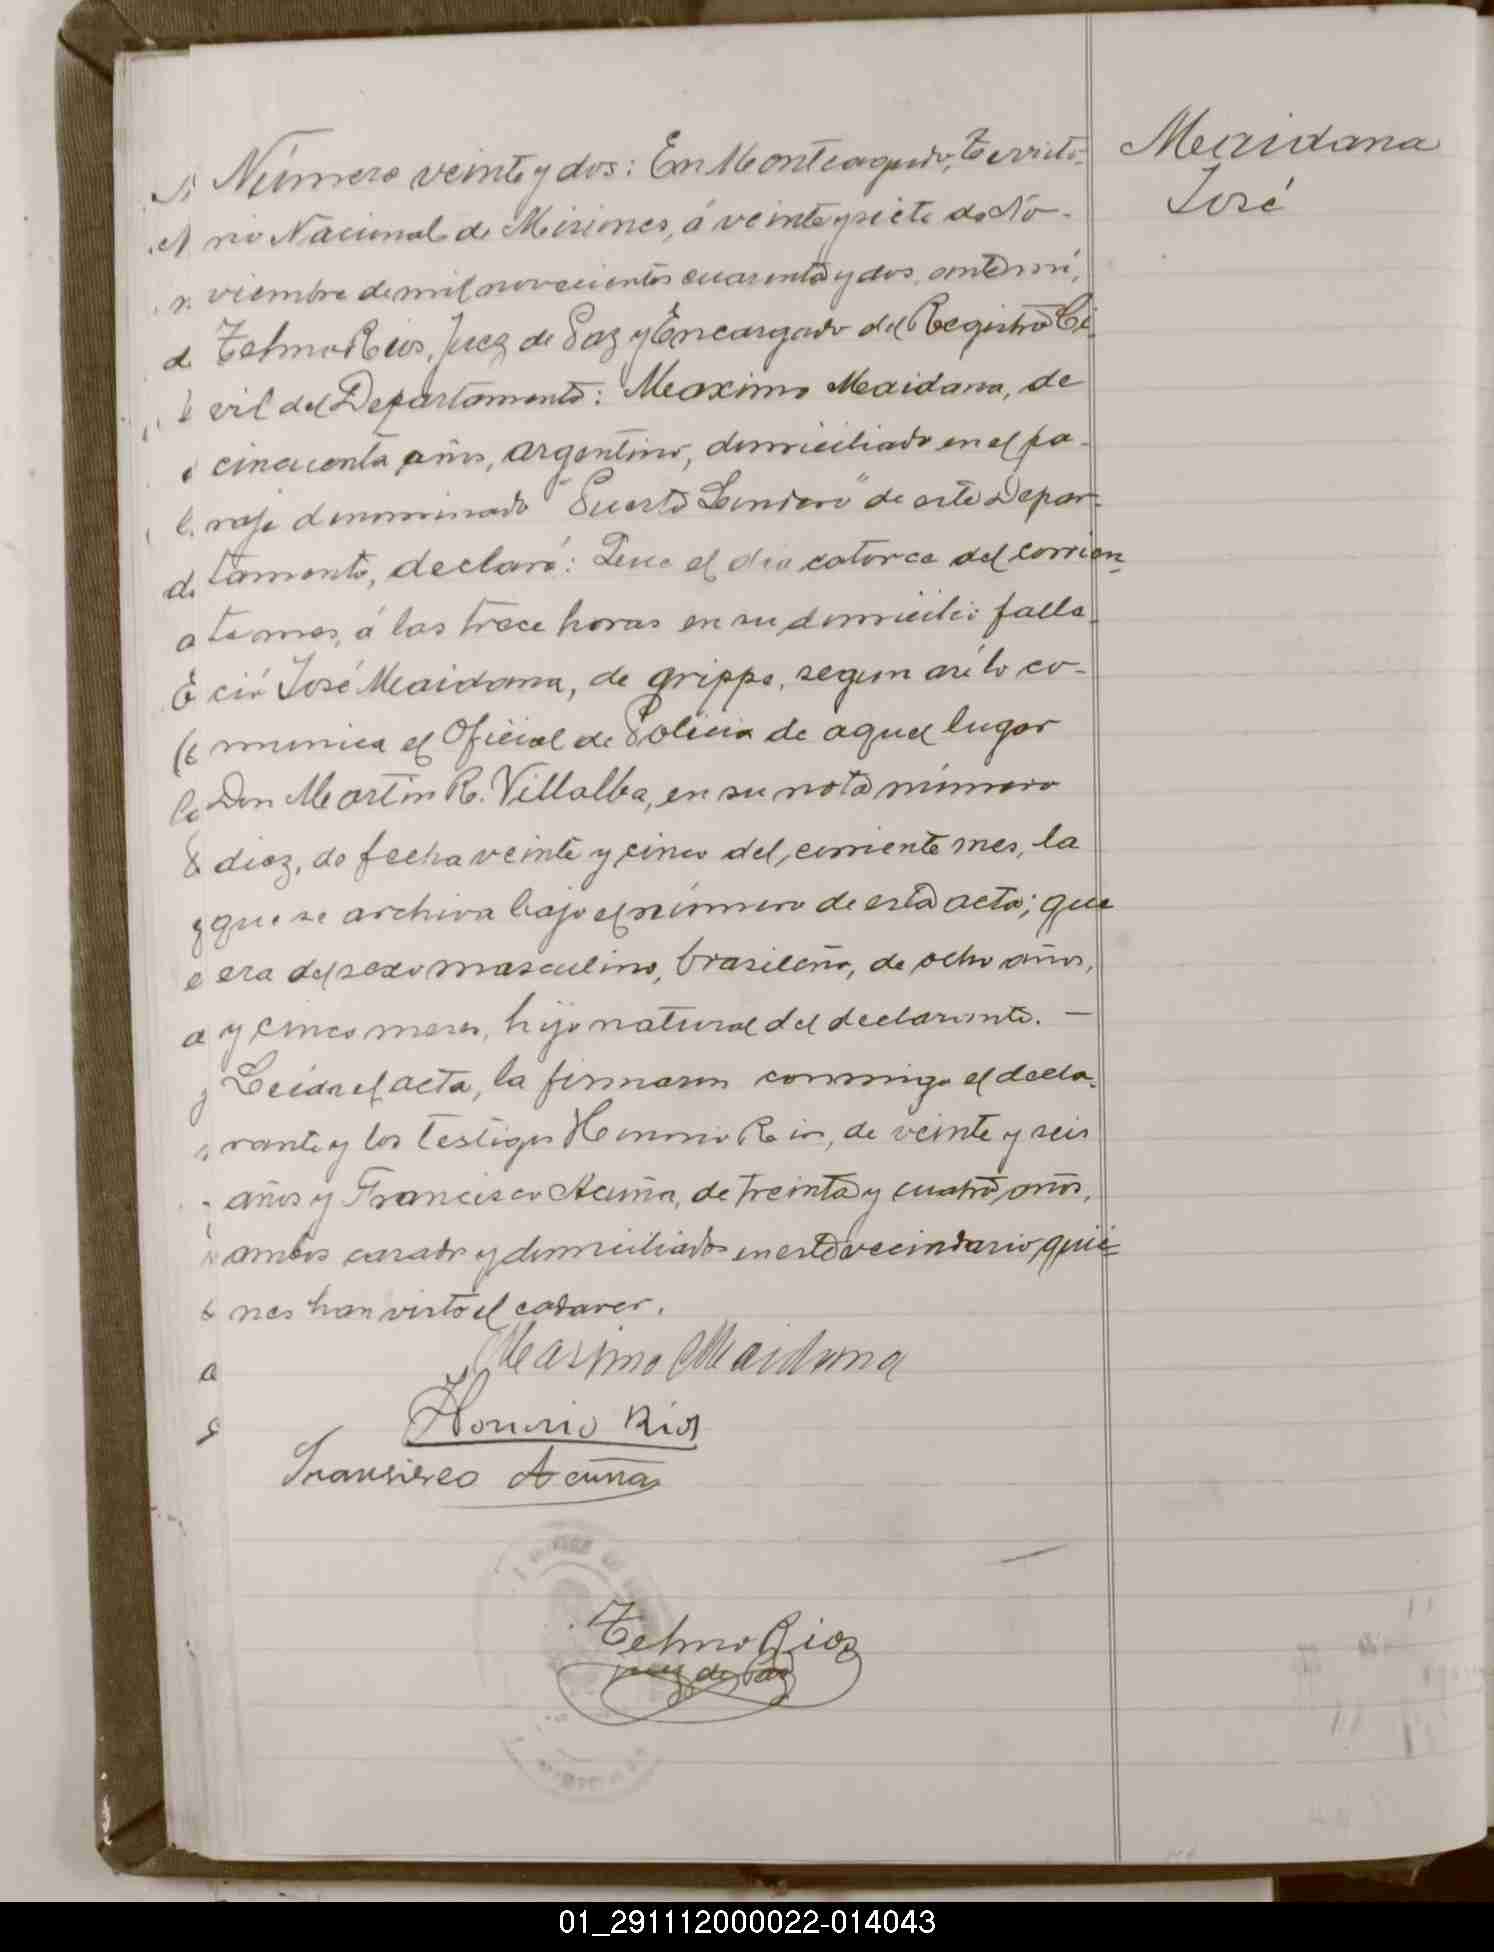 Maidana
José
Número veinte y dos: En Monteagudo, Territo-
rio Nacional de Misiones, á veinte y siete de No-
viembre de mil novecientos cuarenta y dos, ante mí,
Telmo Rios, Juez de Paz y Encargado del Registro Ci-
vil del Departamento: Maximo Maidana, de
cincuenta años, argentino, domiciliado en el pa-
raje denominado "Puerto Londero" de este Depar-
tamento, declaró: Que el dia catorce del corrien-
te mes, á las trece horas en su domicilio falle-
ció José Maidana, de grippe, segun así lo co-
munica el Oficial de Policia de aquel lugar
Don Martin R. Villalba, en su nota número
diez, de fecha veinte y cinco del corriente mes, la
que se archiva bajo el número de esta acta; que
era del sexo masculino, brasileño, de ocho años,
y cinco meses, hijo natural del declarante. —
Leida el acta, la firmaron conmigo el decla-
rante y los testigos Honorio Rios, de veinte y seis
años y Francisco Acuña, de treinta y cuatro años,
ambos casados y domiciliados en este vecindario, quie-
nes han visto el cadaver.
Masimo Maidana
Honorio Rios
Fransisco Acuña
Telmo Rios
Juez de Paz
01_291112000022-014043